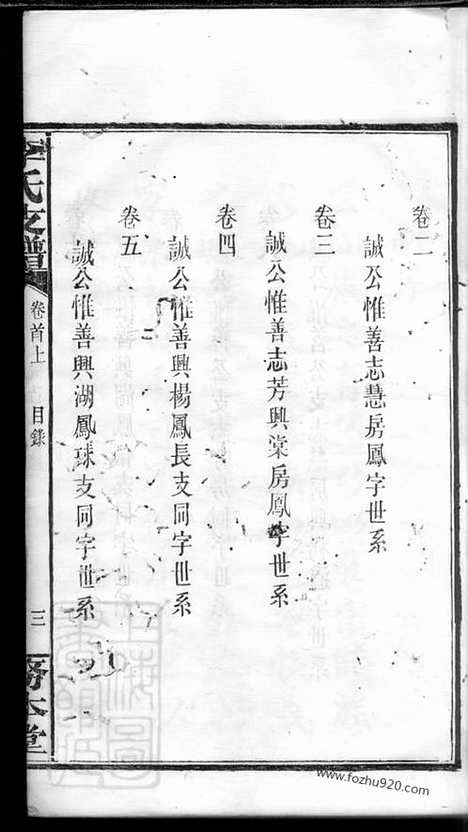 卷二
誠公惟善志慧房鳳字世系
卷三
誠公惟善志芳興棠房鳳字世系
卷四
誠公惟善興楊鳳長支同字世系
卷五
誠公惟善興湖鳳球支同字世系
氏支譜
卷首上
目錄
三
務本堂
www.fozhu920.com